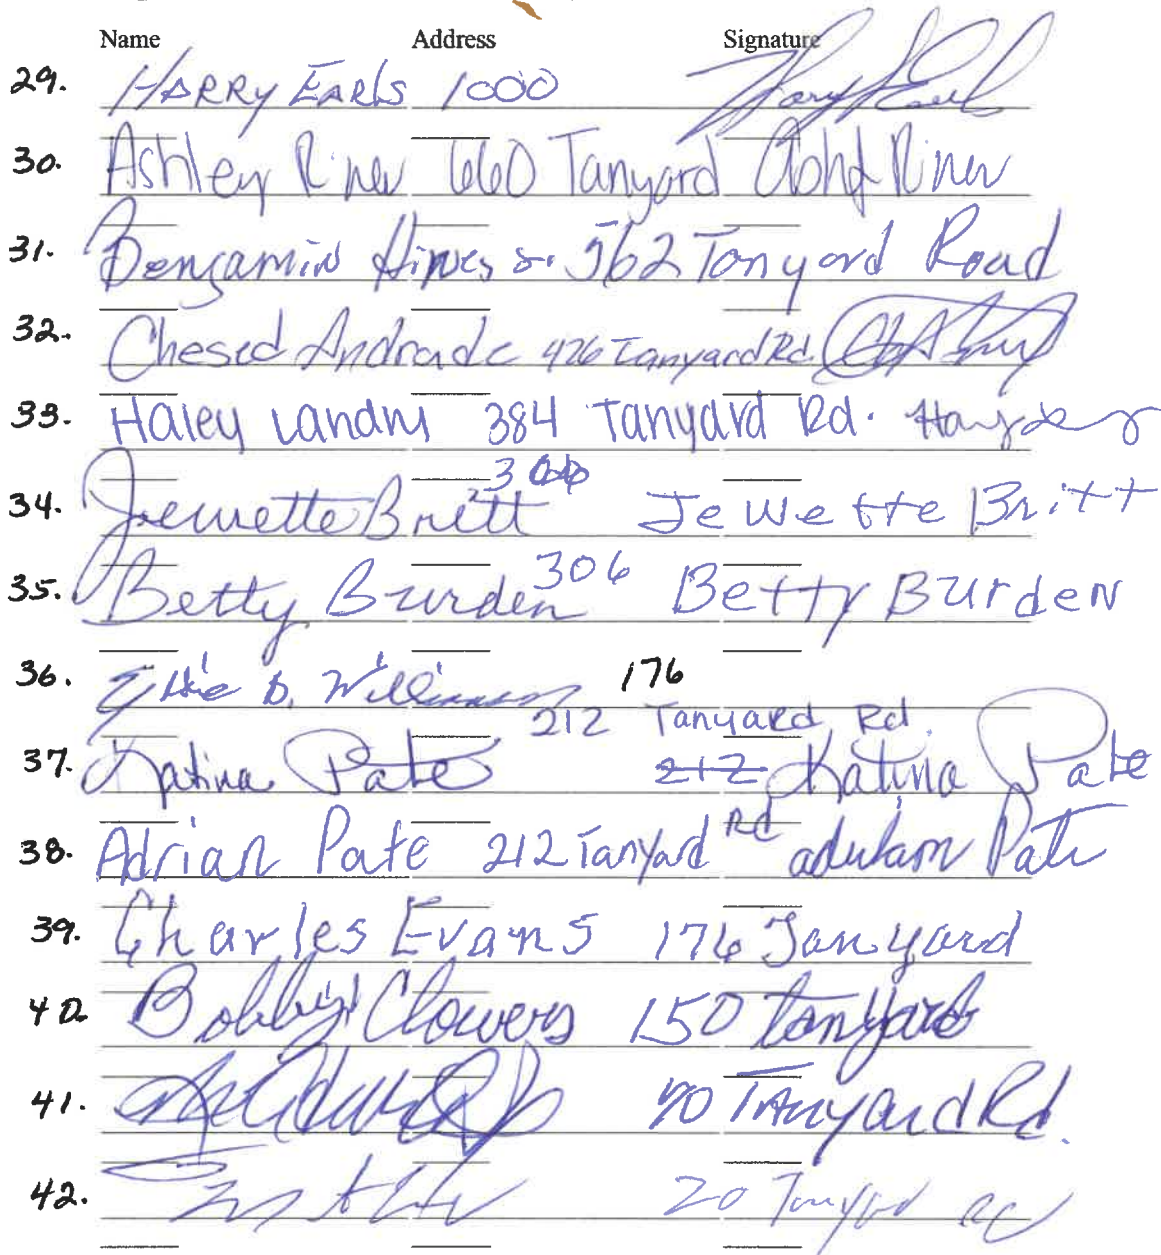 Name Address Signature
29. HARRY EARLS 1000 Harry Earls
30. Ashley Riner 660 Tanyard Riner
31. Benjamin Hines Sr. 562 Tanyard Road
32. Chesed Andrade 426 Tanyard Rd.
33. Haley Landry 384 Tanyard Rd.
34. Jewette Britt 306 Jewette Britt
35. Betty Burden 306 Betty Burden
36. B. Williamson 176
212 Tanyard Rd.
37. Katina Pate 212 Katina Pate
38. Adrian Pate 212 Tanyard Rd Pate
39. Charles Evans 176 Tanyard
40. Bobby Clowers 150 tanyard
41. Tanyard Rd.
42. 20 Tanyard Rd